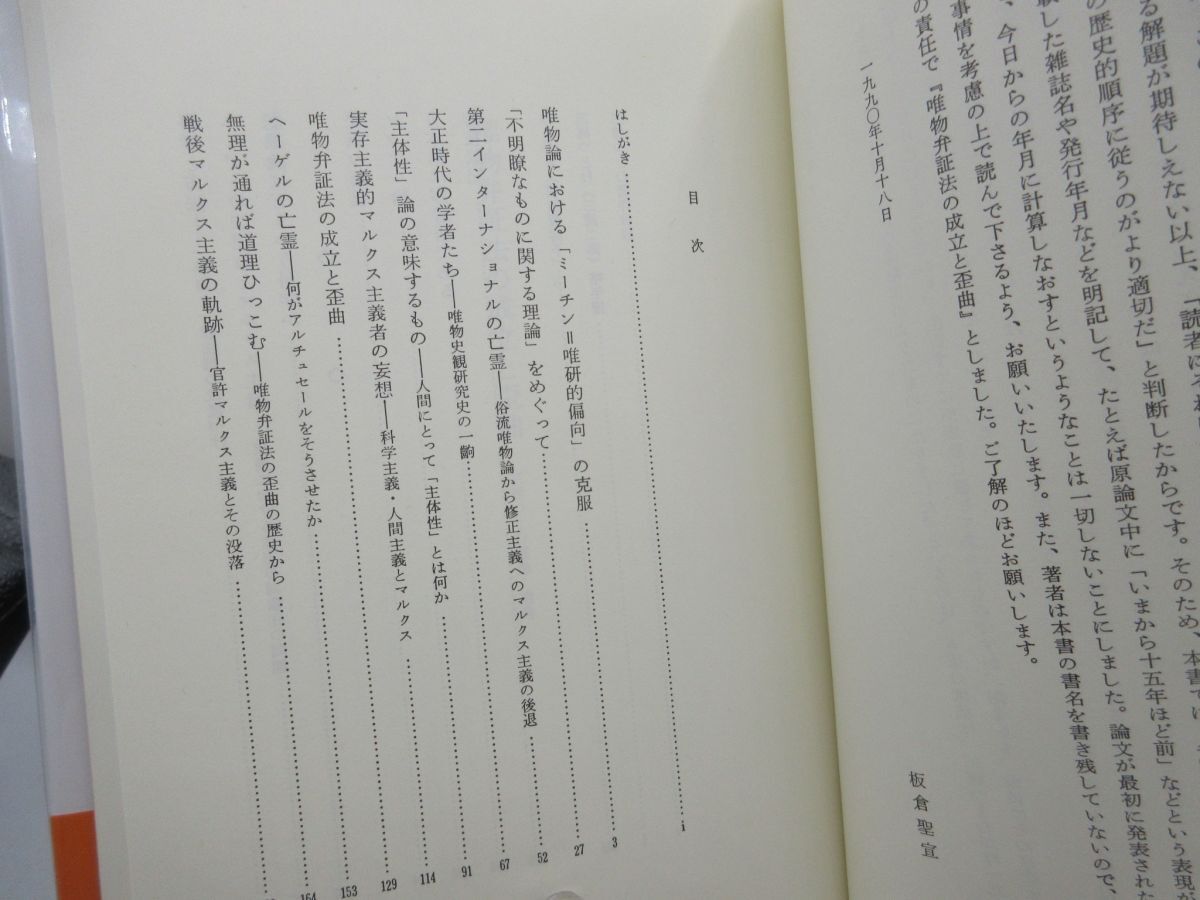 る解題が期待しえない以上、「読者に
の歴史的順序に従うのがより適切だ」と判断したからです。そのため、本書では、
載した雑誌名や発行年月などを明記して、たとえば原論文中に「いまから十五年ほど前」などという表現が
、今日からの年月に計算しなおすというようなことは一切しないことにしました。論文が最初に発表された
事情を考慮の上で読んで下さるよう、お願いいたします。また、著者は本書の書名を書き残していないので、
の責任で『唯物弁証法の成立と歪曲』としました。ご了解のほどお願いします。
一九九〇年十月十八日
板倉聖宣
目次
はしがき……i
唯物論における「ミーチン＝唯研的偏向」の克服……3
「不明瞭なものに関する理論」をめぐって……27
第二インターナショナルの亡霊――俗流唯物論から修正主義へのマルクス主義の後退……52
大正時代の学者たち――唯物史観研究史の一齣……67
「主体性」論の意味するもの――人間にとって「主体性」とは何か……91
実存主義的マルクス主義者の妄想――科学主義・人間主義とマルクス……114
唯物弁証法の成立と歪曲……129
ヘーゲルの亡霊――何がアルチュセールをそうさせたか……153
無理が通れば道理ひっこむ――唯物弁証法の歪曲の歴史から……164
戦後マルクス主義の軌跡――官許マルクス主義とその没落……